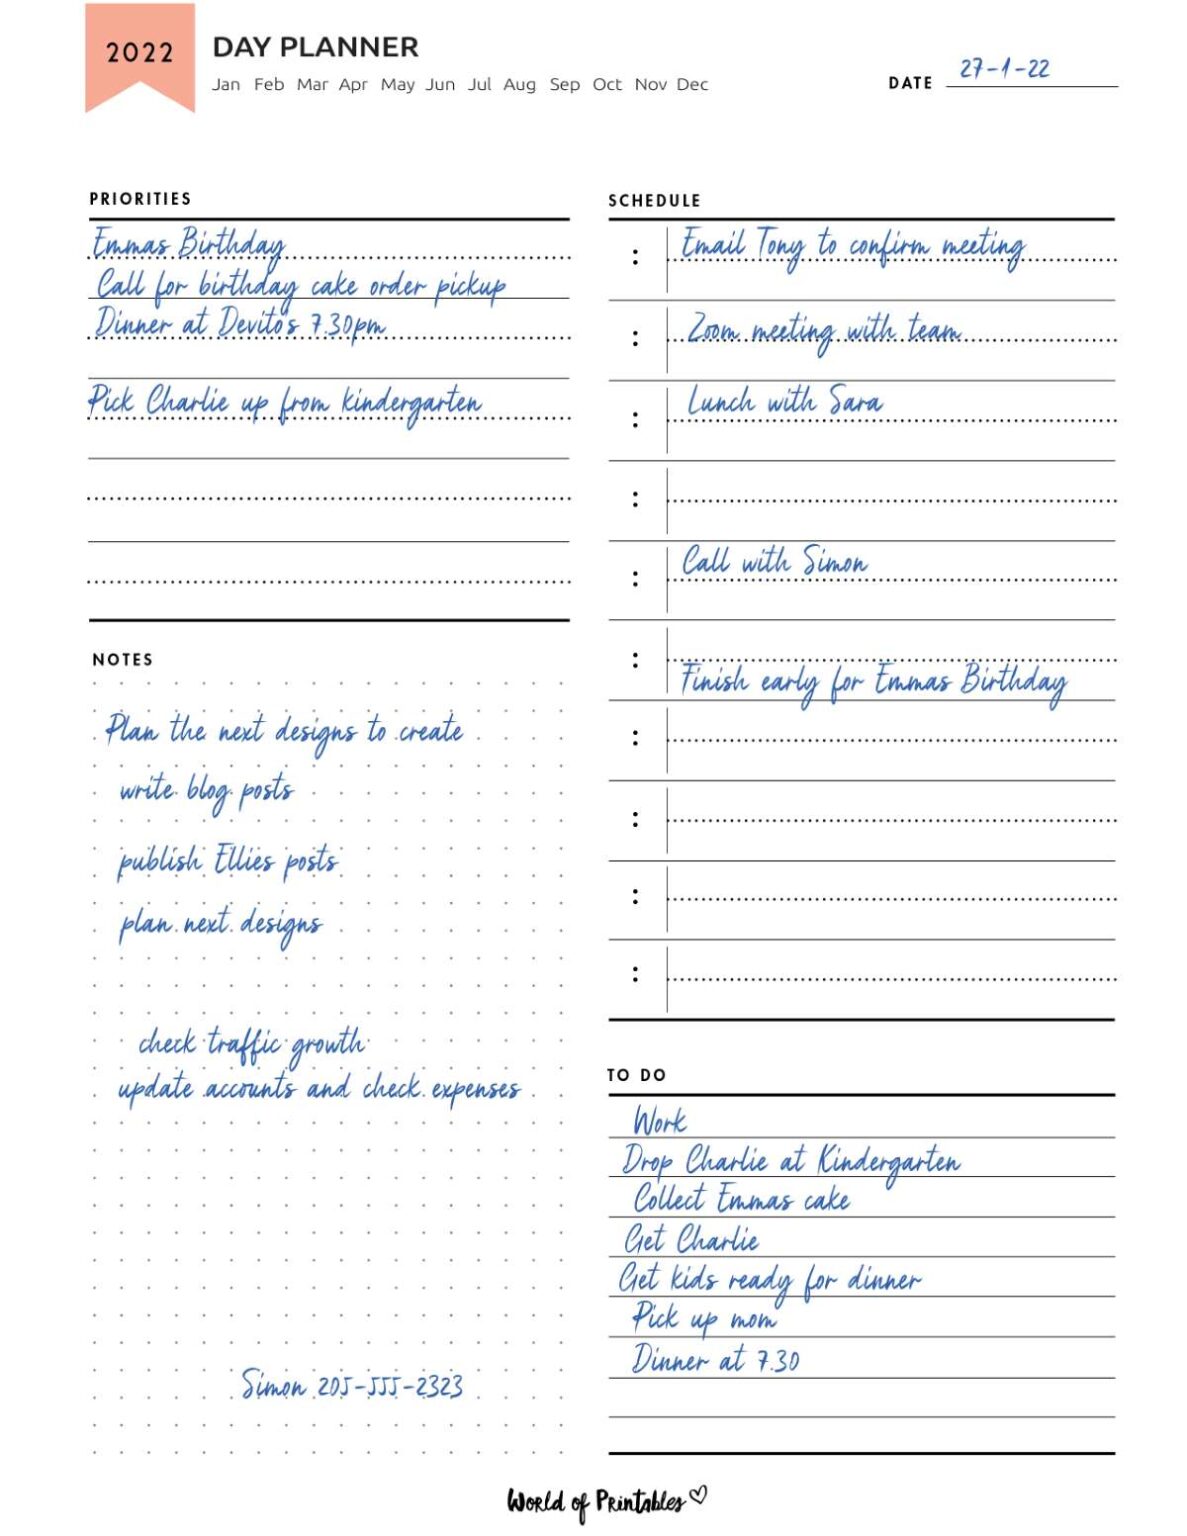 2022
DAY PLANNER
Jan Feb Mar Apr May Jun Jul Aug Sep Oct Nov Dec
DATE 27-1-22
PRIORITIES
Emmas Birthday
Call for birthday cake order pickup
Dinner at Devito's 7.30pm
Pick Charlie up from kindergarten
NOTES
Plan the next designs to create
write blog posts
publish Ellies posts
plan next designs
check traffic growth
update accounts and check expenses
Simon 205-555-2323
SCHEDULE
: Email Tony to confirm meeting
: Zoom meeting with team
: Lunch with Sara
:
: Call with Simon
: Finish early for Emmas Birthday
:
:
:
:
TO DO
Work
Drop Charlie at Kindergarten
Collect Emmas cake
Get Charlie
Get kids ready for dinner
Pick up mom
Dinner at 7.30
World of Printables